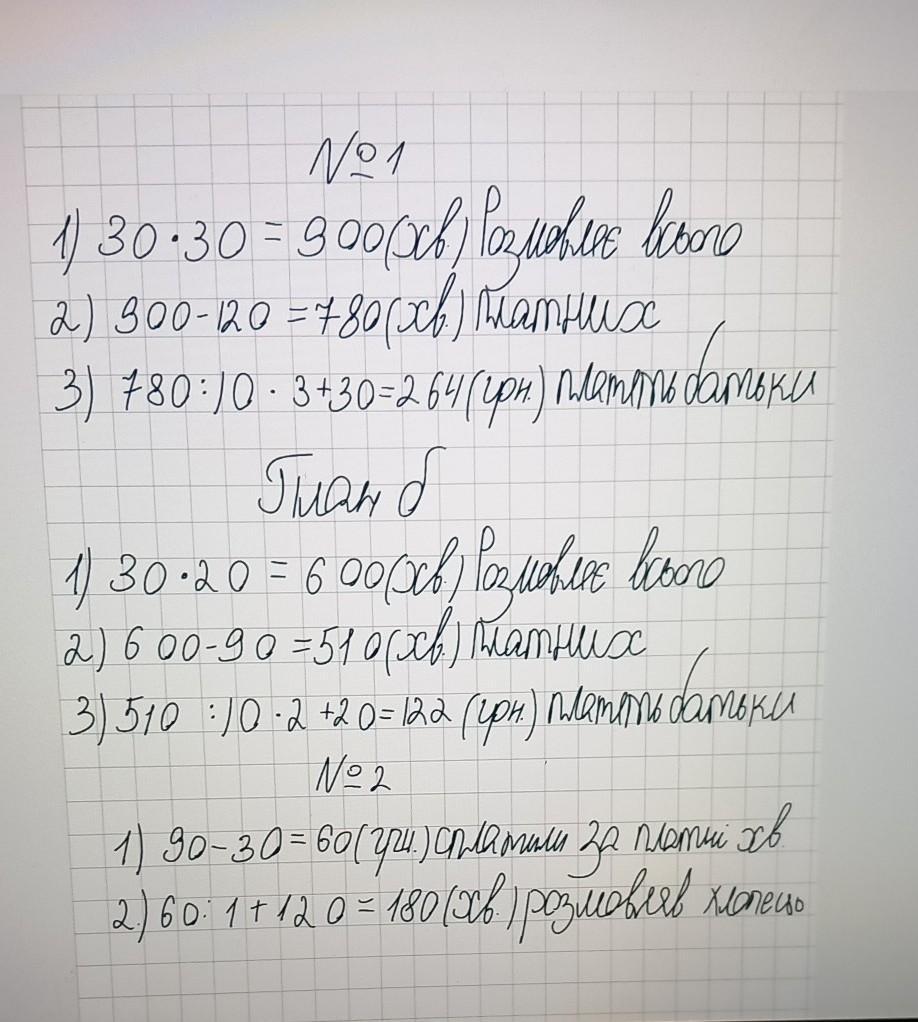 №1
1) 30·30 = 900(хв.) Розмовляє всього
2) 900-120 =780(хв.) Платних
3) 780:10 · 3+30=264(грн.) платять батьки
План б
1) 30·20 = 600(хв.) Розмовляє всього
2) 600-90 =510(хв.) Платних
3) 510 :10 ·2 +20=122 (грн.) платять батьки
№2
1) 90-30=60(грн.) сплатили за платні хв.
2.) 60:1+120=180(хв.) розмовляв хлопець